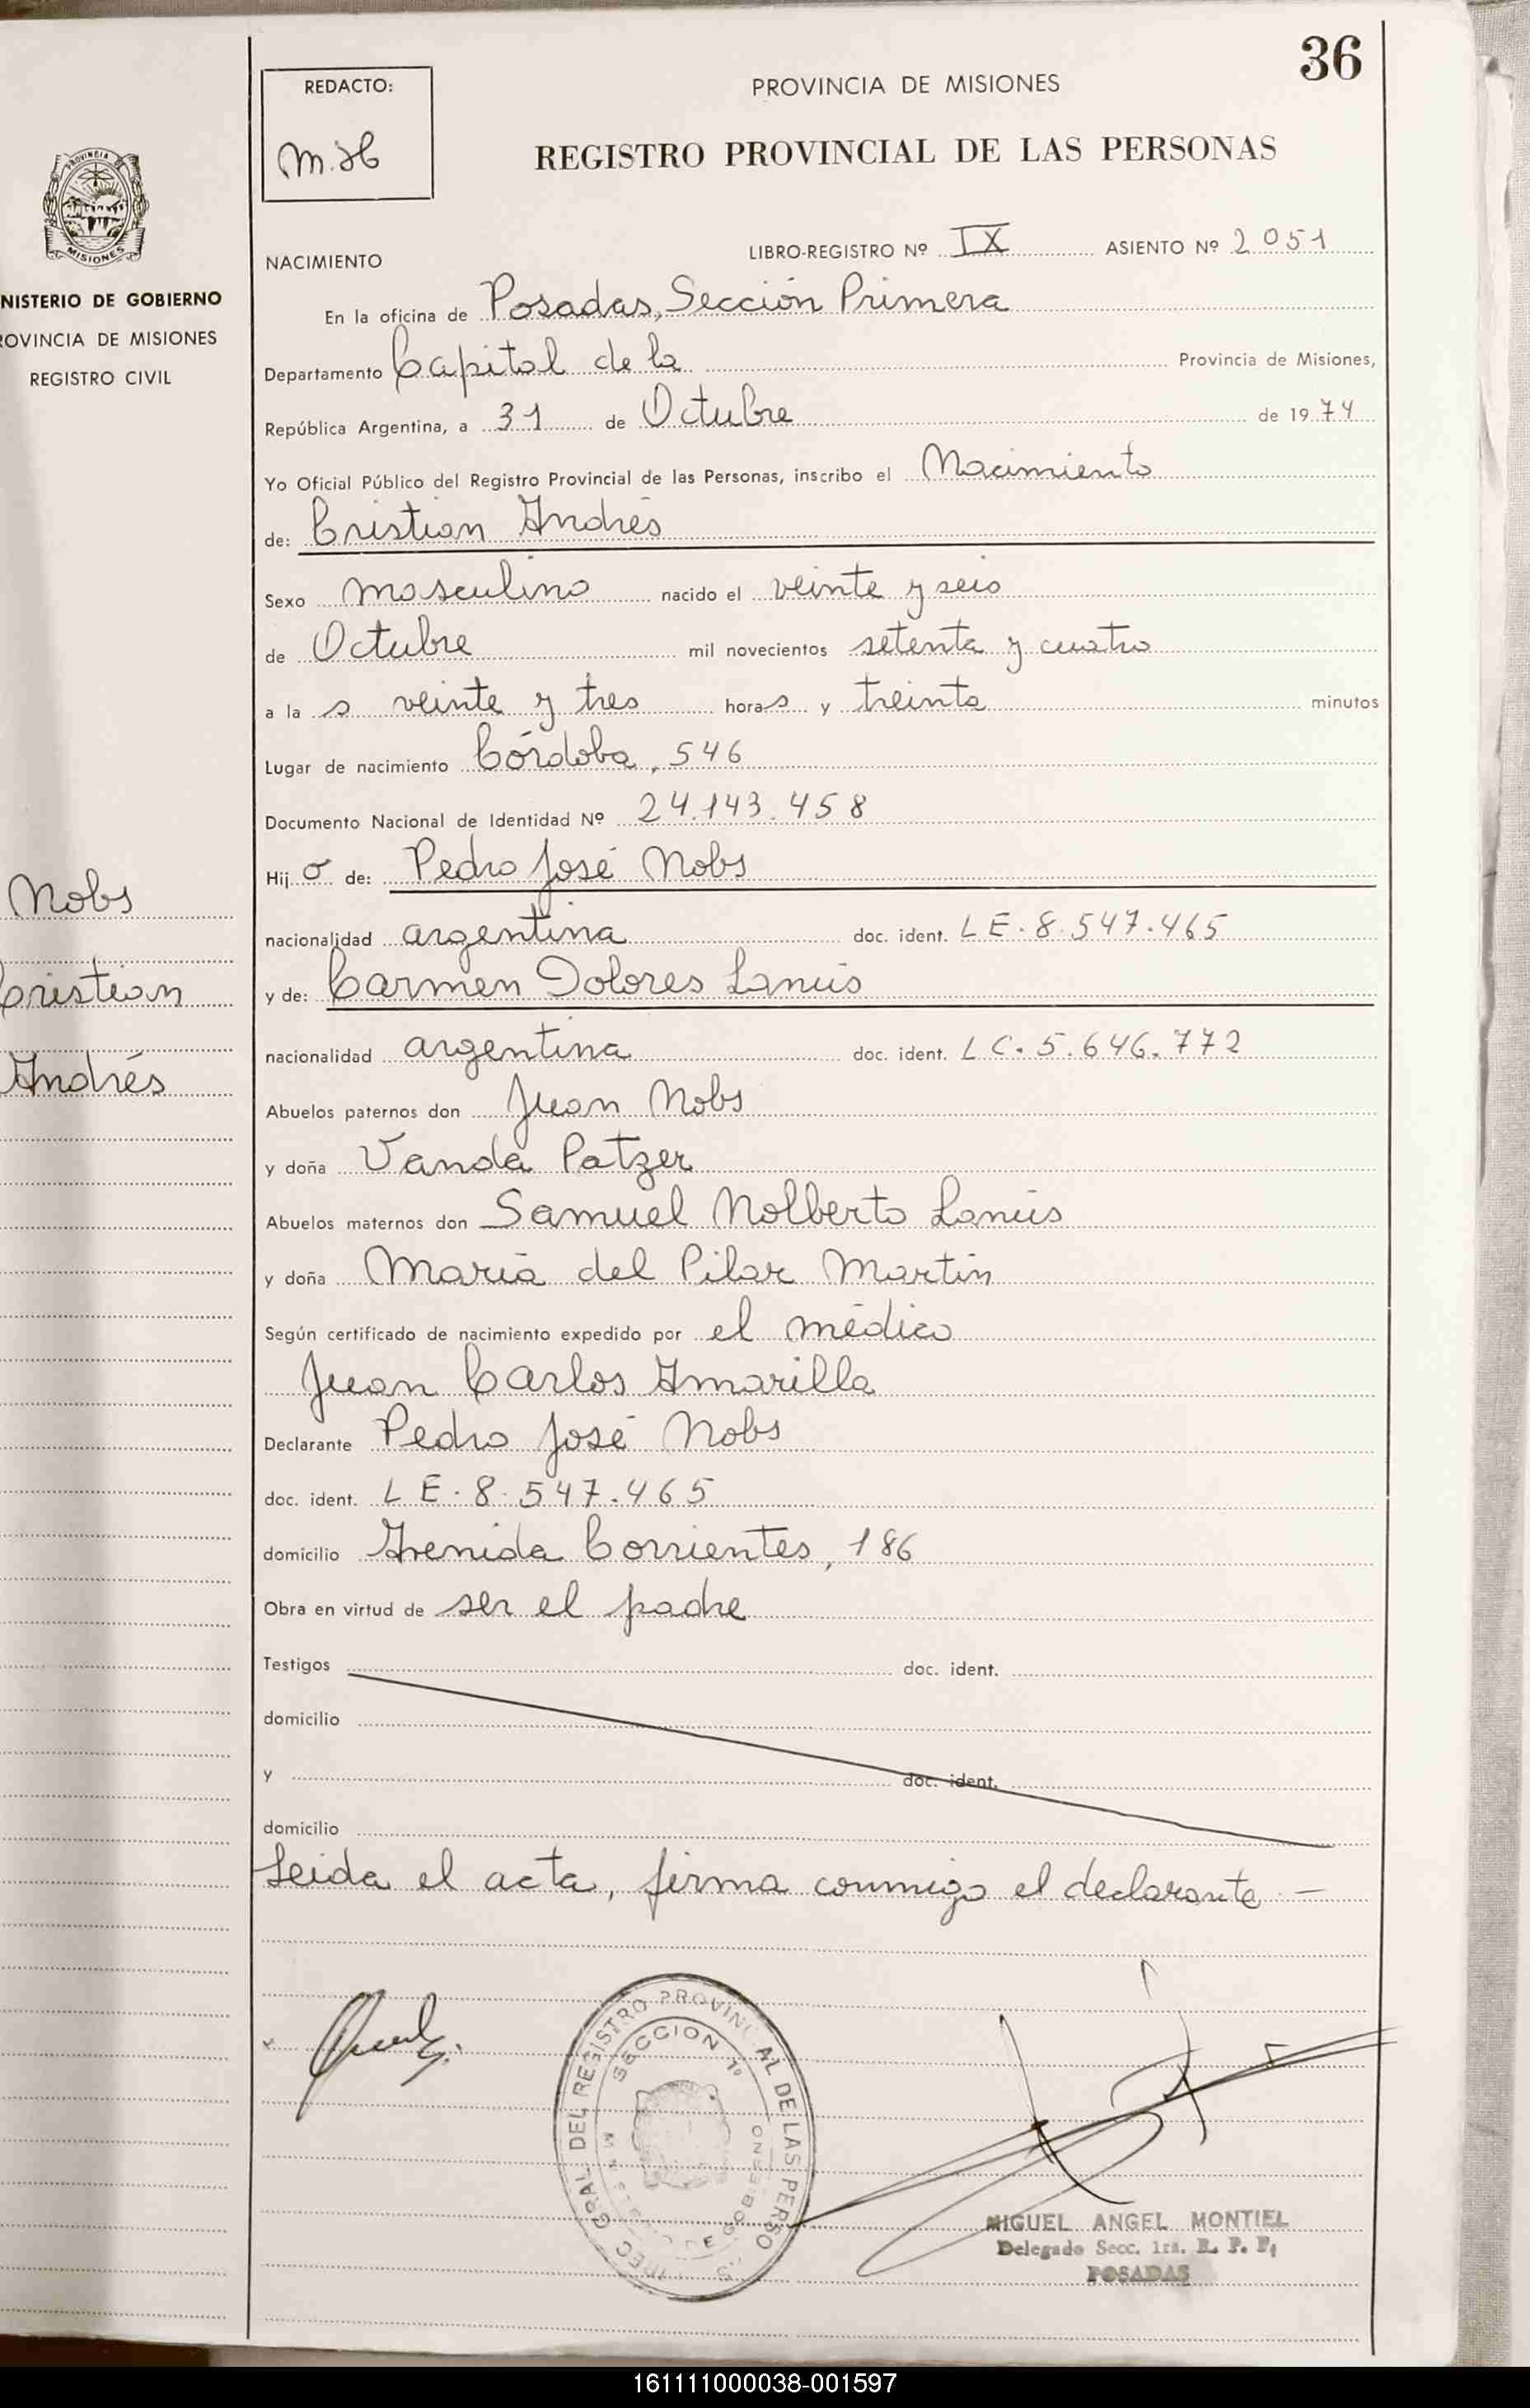 36
REDACTO:
PROVINCIA DE MISIONES
REGISTRO PROVINCIAL DE LAS PERSONAS
PROVINCIA
MISIONES
NISTERIO DE GOBIERNO
ROVINCIA DE MISIONES
REGISTRO CIVIL
NACIMIENTO LIBRO-REGISTRO Nº IX ASIENTO Nº 2051
En la oficina de Posadas, Sección Primera
Departamento Capital de la Provincia de Misiones,
República Argentina, a 31 de Octubre de 1974
Yo Oficial Público del Registro Provincial de las Personas, inscribo el Nacimiento
de: Cristian Andrés
Sexo masculino nacido el veinte y seis
de Octubre mil novecientos setenta y cuatro
a la s veinte y tres horas y treinta minutos
Lugar de nacimiento Córdoba, 546
Documento Nacional de Identidad Nº 24.143.458
Hij o de: Pedro José Nobs
Nobs
nacionalidad argentina doc. ident. LE.8.547.465
Cristian
y de: Carmen Dolores Lanús
nacionalidad argentina doc. ident. LC.5.646.772
Andrés
Abuelos paternos don Juan Nobs
y doña Vanda Patzer
Abuelos maternos don Samuel Nolberto Lanús
y doña María del Pilar Martín
Según certificado de nacimiento expedido por el médico
Juan Carlos Amarilla
Declarante Pedro José Nobs
doc. ident. LE.8.547.465
domicilio Avenida Corrientes, 186
Obra en virtud de ser el padre
Testigos doc. ident.
domicilio
y doc. ident.
domicilio
Leida el acta, firma conmigo el declarante.-
GRAL. DEL REGISTRO PROVINCIAL DE LAS PERSO
SECCION 1º
MIGUEL ANGEL MONTIEL
Delegado Secc. 1ra. R. P. P.
POSADAS
161111000038-001597